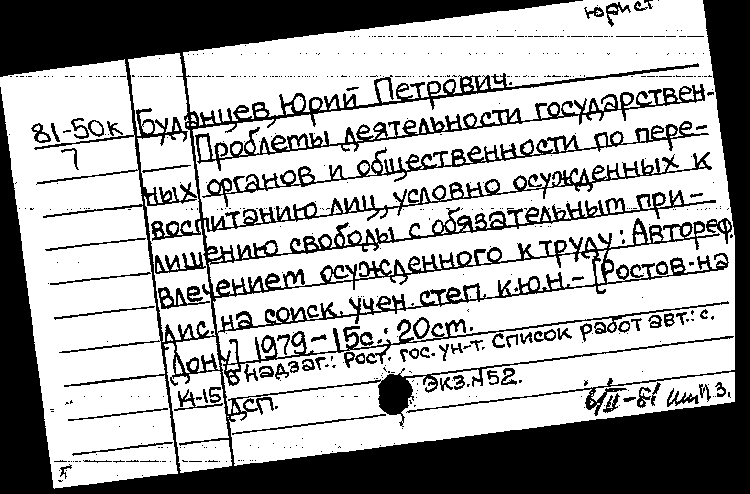 юрист
81-50к Буданцев, Юрий Петрович.
7 Проблемы деятельности государствен-
ных органов и общественности по пере-
воспитанию лиц, условно осужденных к
лишению свободы с обязательным при-
влечением осужденного к труду: Автореф.
дис. на соиск. учен. степ. к.ю.н. - [Ростов-на
Дону] 1979. - 15с.; 20см.
В надзаг.: Рост. гос. ун-т. Список работ авт.: с.
14-15 ДСП. Экз. №52.
6/II-81
5